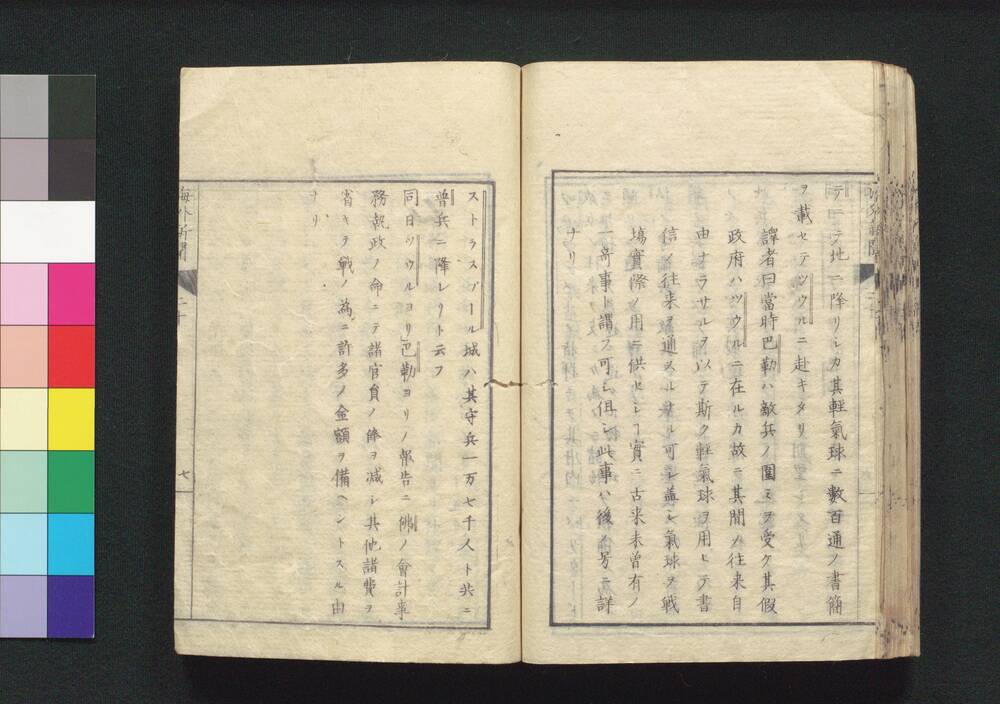 テニテ地ニ降リシカ其輕氣球ニ數百通ノ書簡
ヲ載セテツウルニ赴キタリ
譯者曰當時巴勒ハ敵兵ノ圍ミヲ受ク其假
政府ハツウルニ在ルカ故ニ其間ノ往来自
由ナラサルヲ以テ斯ク輕氣球ヲ用ヒテ書
信ノ往来ヲ通スルナル可シ蓋シ氣球ヲ戦
塲實際ノ用ニ供セシヿ實ニ古来未曽有ノ
一奇事ト謂フ可シ但シ此事ハ後ノ号ニ詳
ナリ
ストラスブール城ハ其守兵一万七千人ト共ニ
普兵ニ降レリト云フ
同日ツウルヨリ巴勒ヨリノ報告ニ佛ノ會計事
務執政ノ命ニテ諸官員ノ俸ヲ减シ其他諸費ヲ
省キテ戰ノ為ニ許多ノ金額ヲ備ヘントスル由
ナリ
海外新聞
七